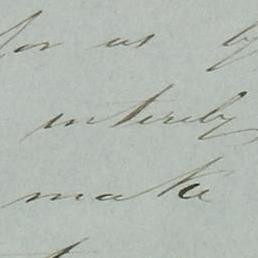 for us by
entirely
make